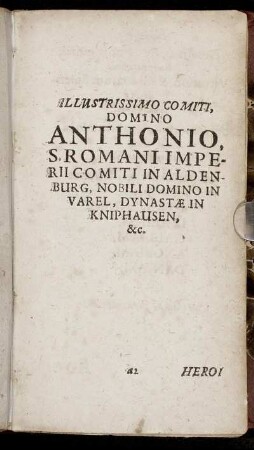 ILLUSTRISSIMO COMITI,
DOMINO
ANTHONIO,
S. ROMANI IMPE-
RII COMITI IN ALDEN-
BURG, NOBILI DOMINO IN
VAREL, DYNASTÆ IN
KNIPHAUSEN,
&c.
a2 HEROI